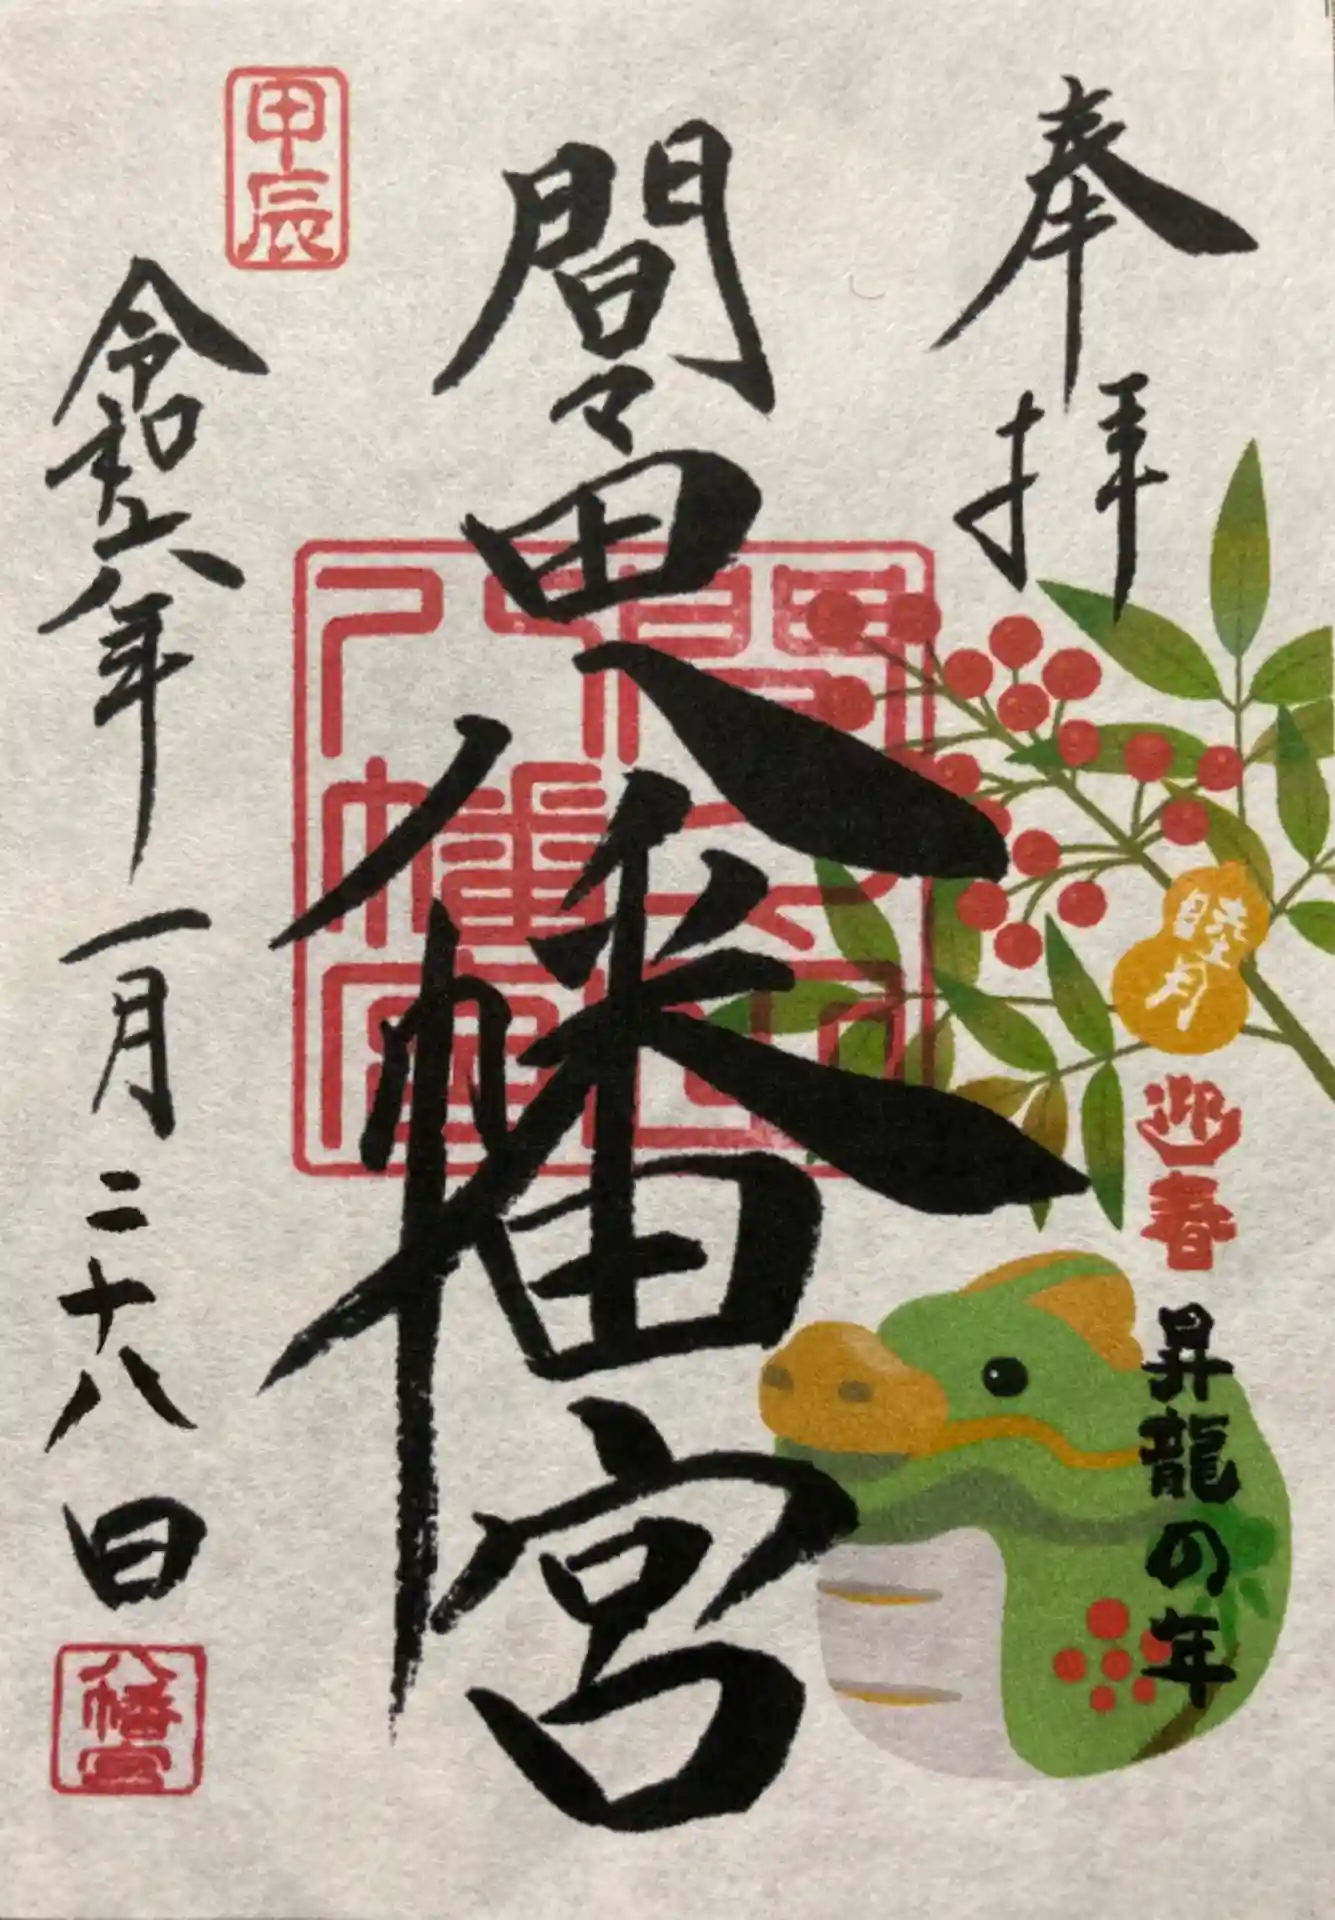 奉拝
睦月
迎春
昇龍の年
間々田八幡宮
間々田八幡宮
甲辰
令和六年一月二十八日
八幡宮